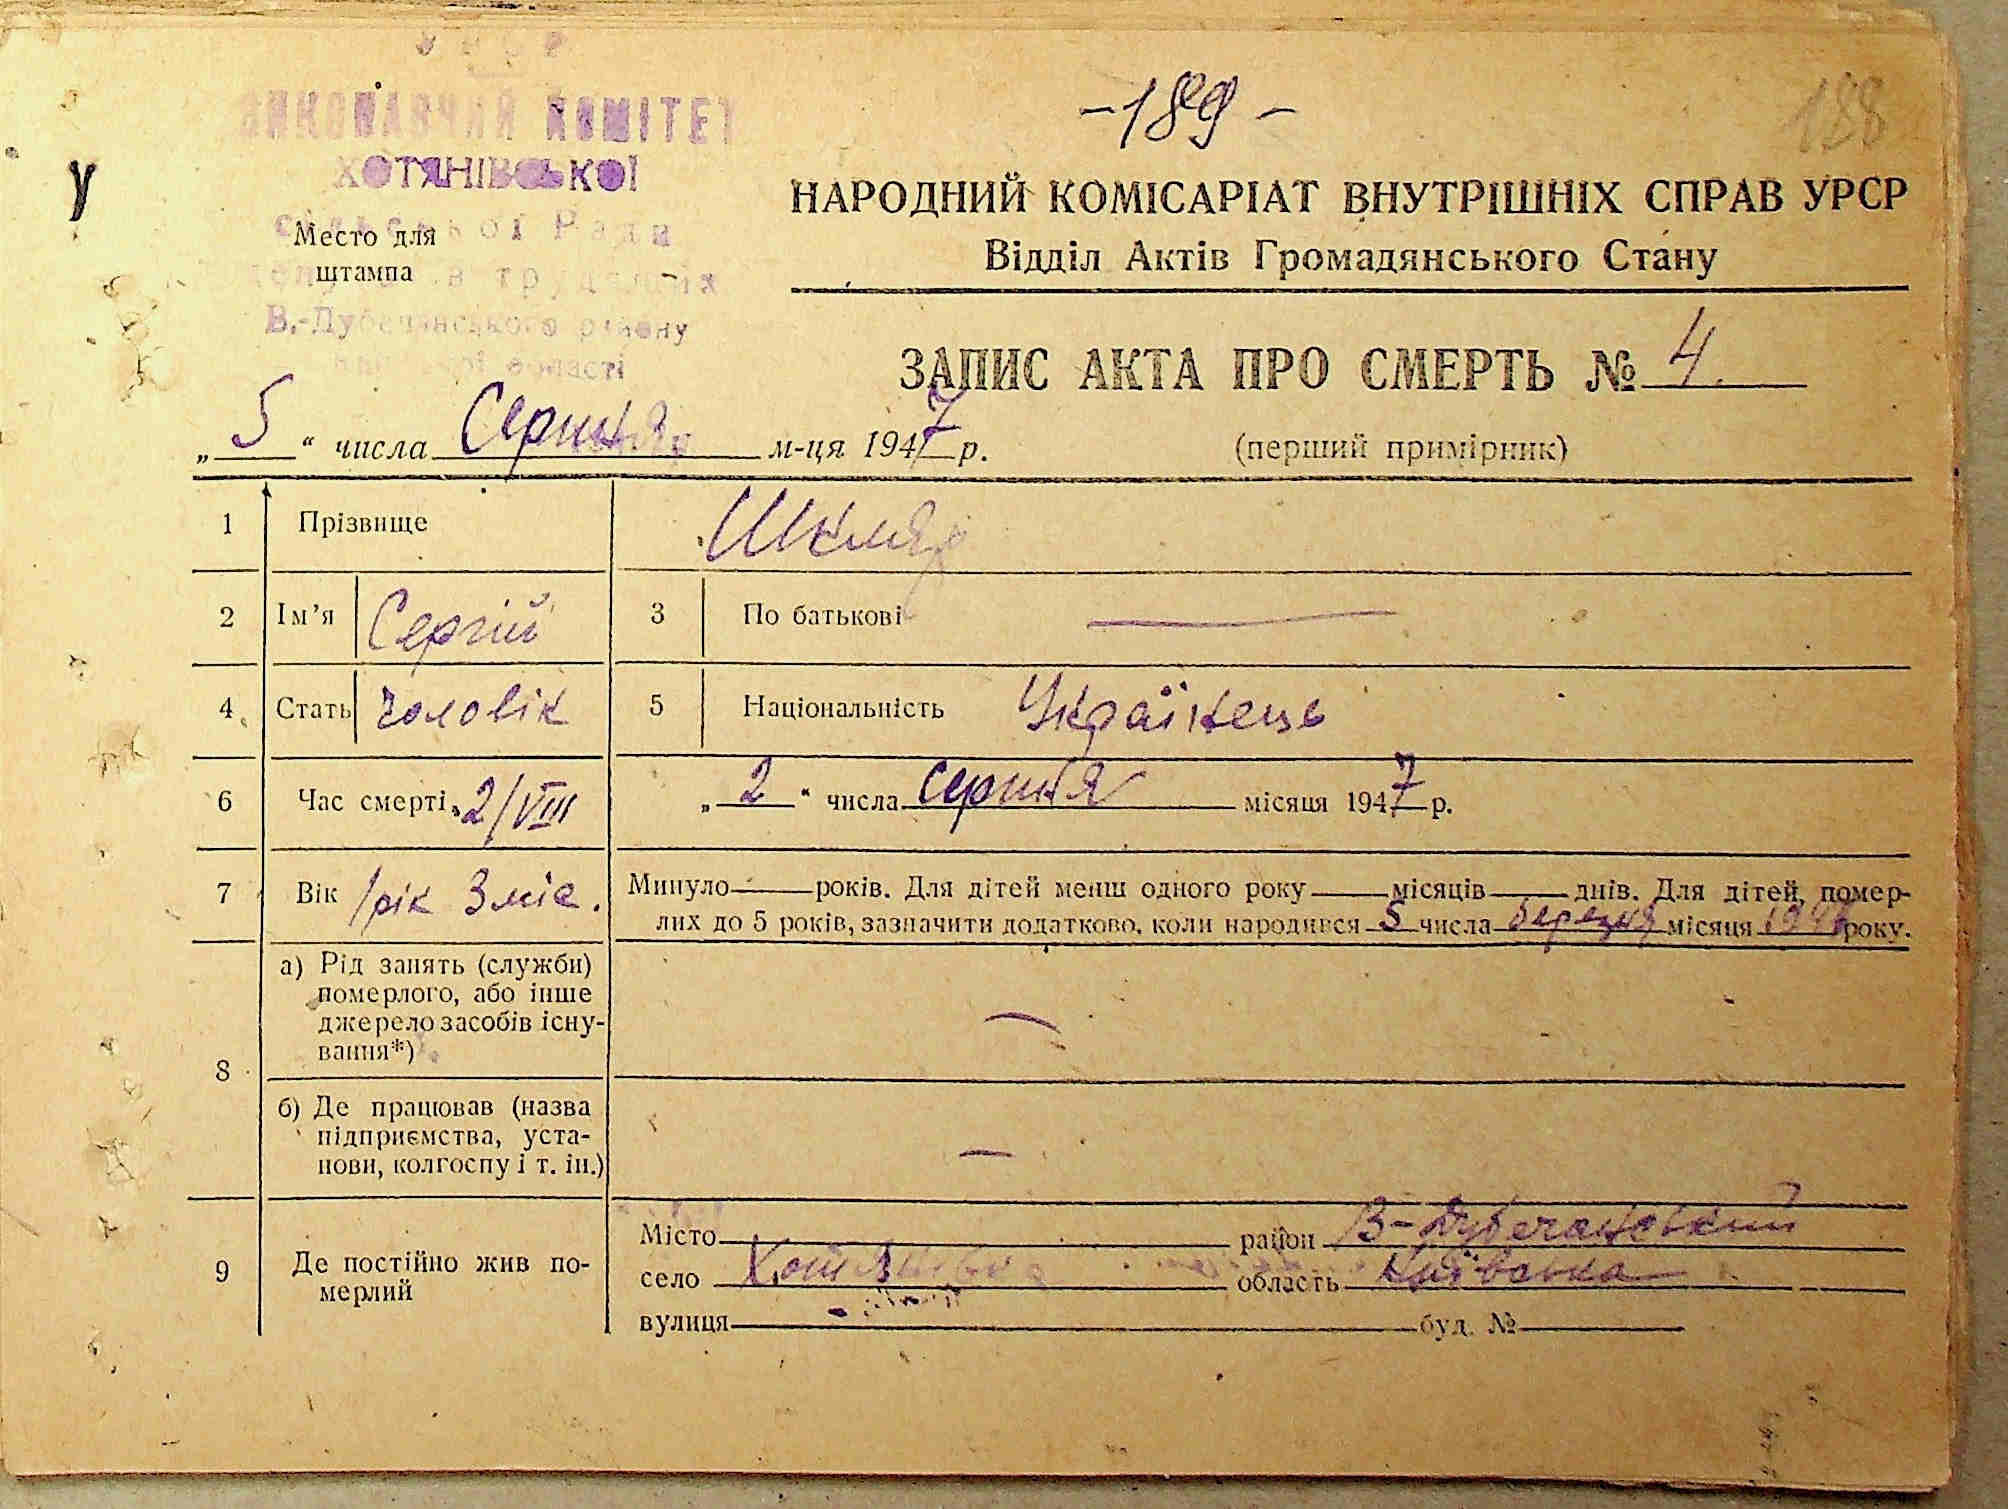 УРСР
ВИКОНАВЧИЙ КОМІТЕТ
ХОТЯНІВСЬКОЇ
сільської Ради
депутатів трудящих
В.-Дубечанського району
Київської області
Место для
штампа
У
-189-
188
НАРОДНИЙ КОМІСАРІАТ ВНУТРІШНІХ СПРАВ УРСР
Відділ Актів Громадянського Стану
ЗАПИС АКТА ПРО СМЕРТЬ № 4.
„5“ числа Серпня м-ця 1947 р. (перший примірник)
1 Прізвище Шкляр
2 Ім’я Сергій 3 По батькові —
4 Стать чоловік 5 Національність Українець
6 Час смерті 2/VIII „2“ числа серпня місяця 1947 р.
7 Вік 1 рік 3 міс. Минуло — років. Для дітей менш одного року — місяців — днів. Для дітей, помер-
лих до 5 років, зазначити додатково, коли народився 5 числа березня місяця року.
8 а) Рід занять (служби)
померлого, або інше
джерело засобів існу-
вання*) —
б) Де працював (назва
підприємства, уста-
нови, колгоспу і т. ін.) —
9 Де постійно жив по-
мерлий
Місто район В-Дубечанський
село Хотянівка область Київська
вулиця — буд. №